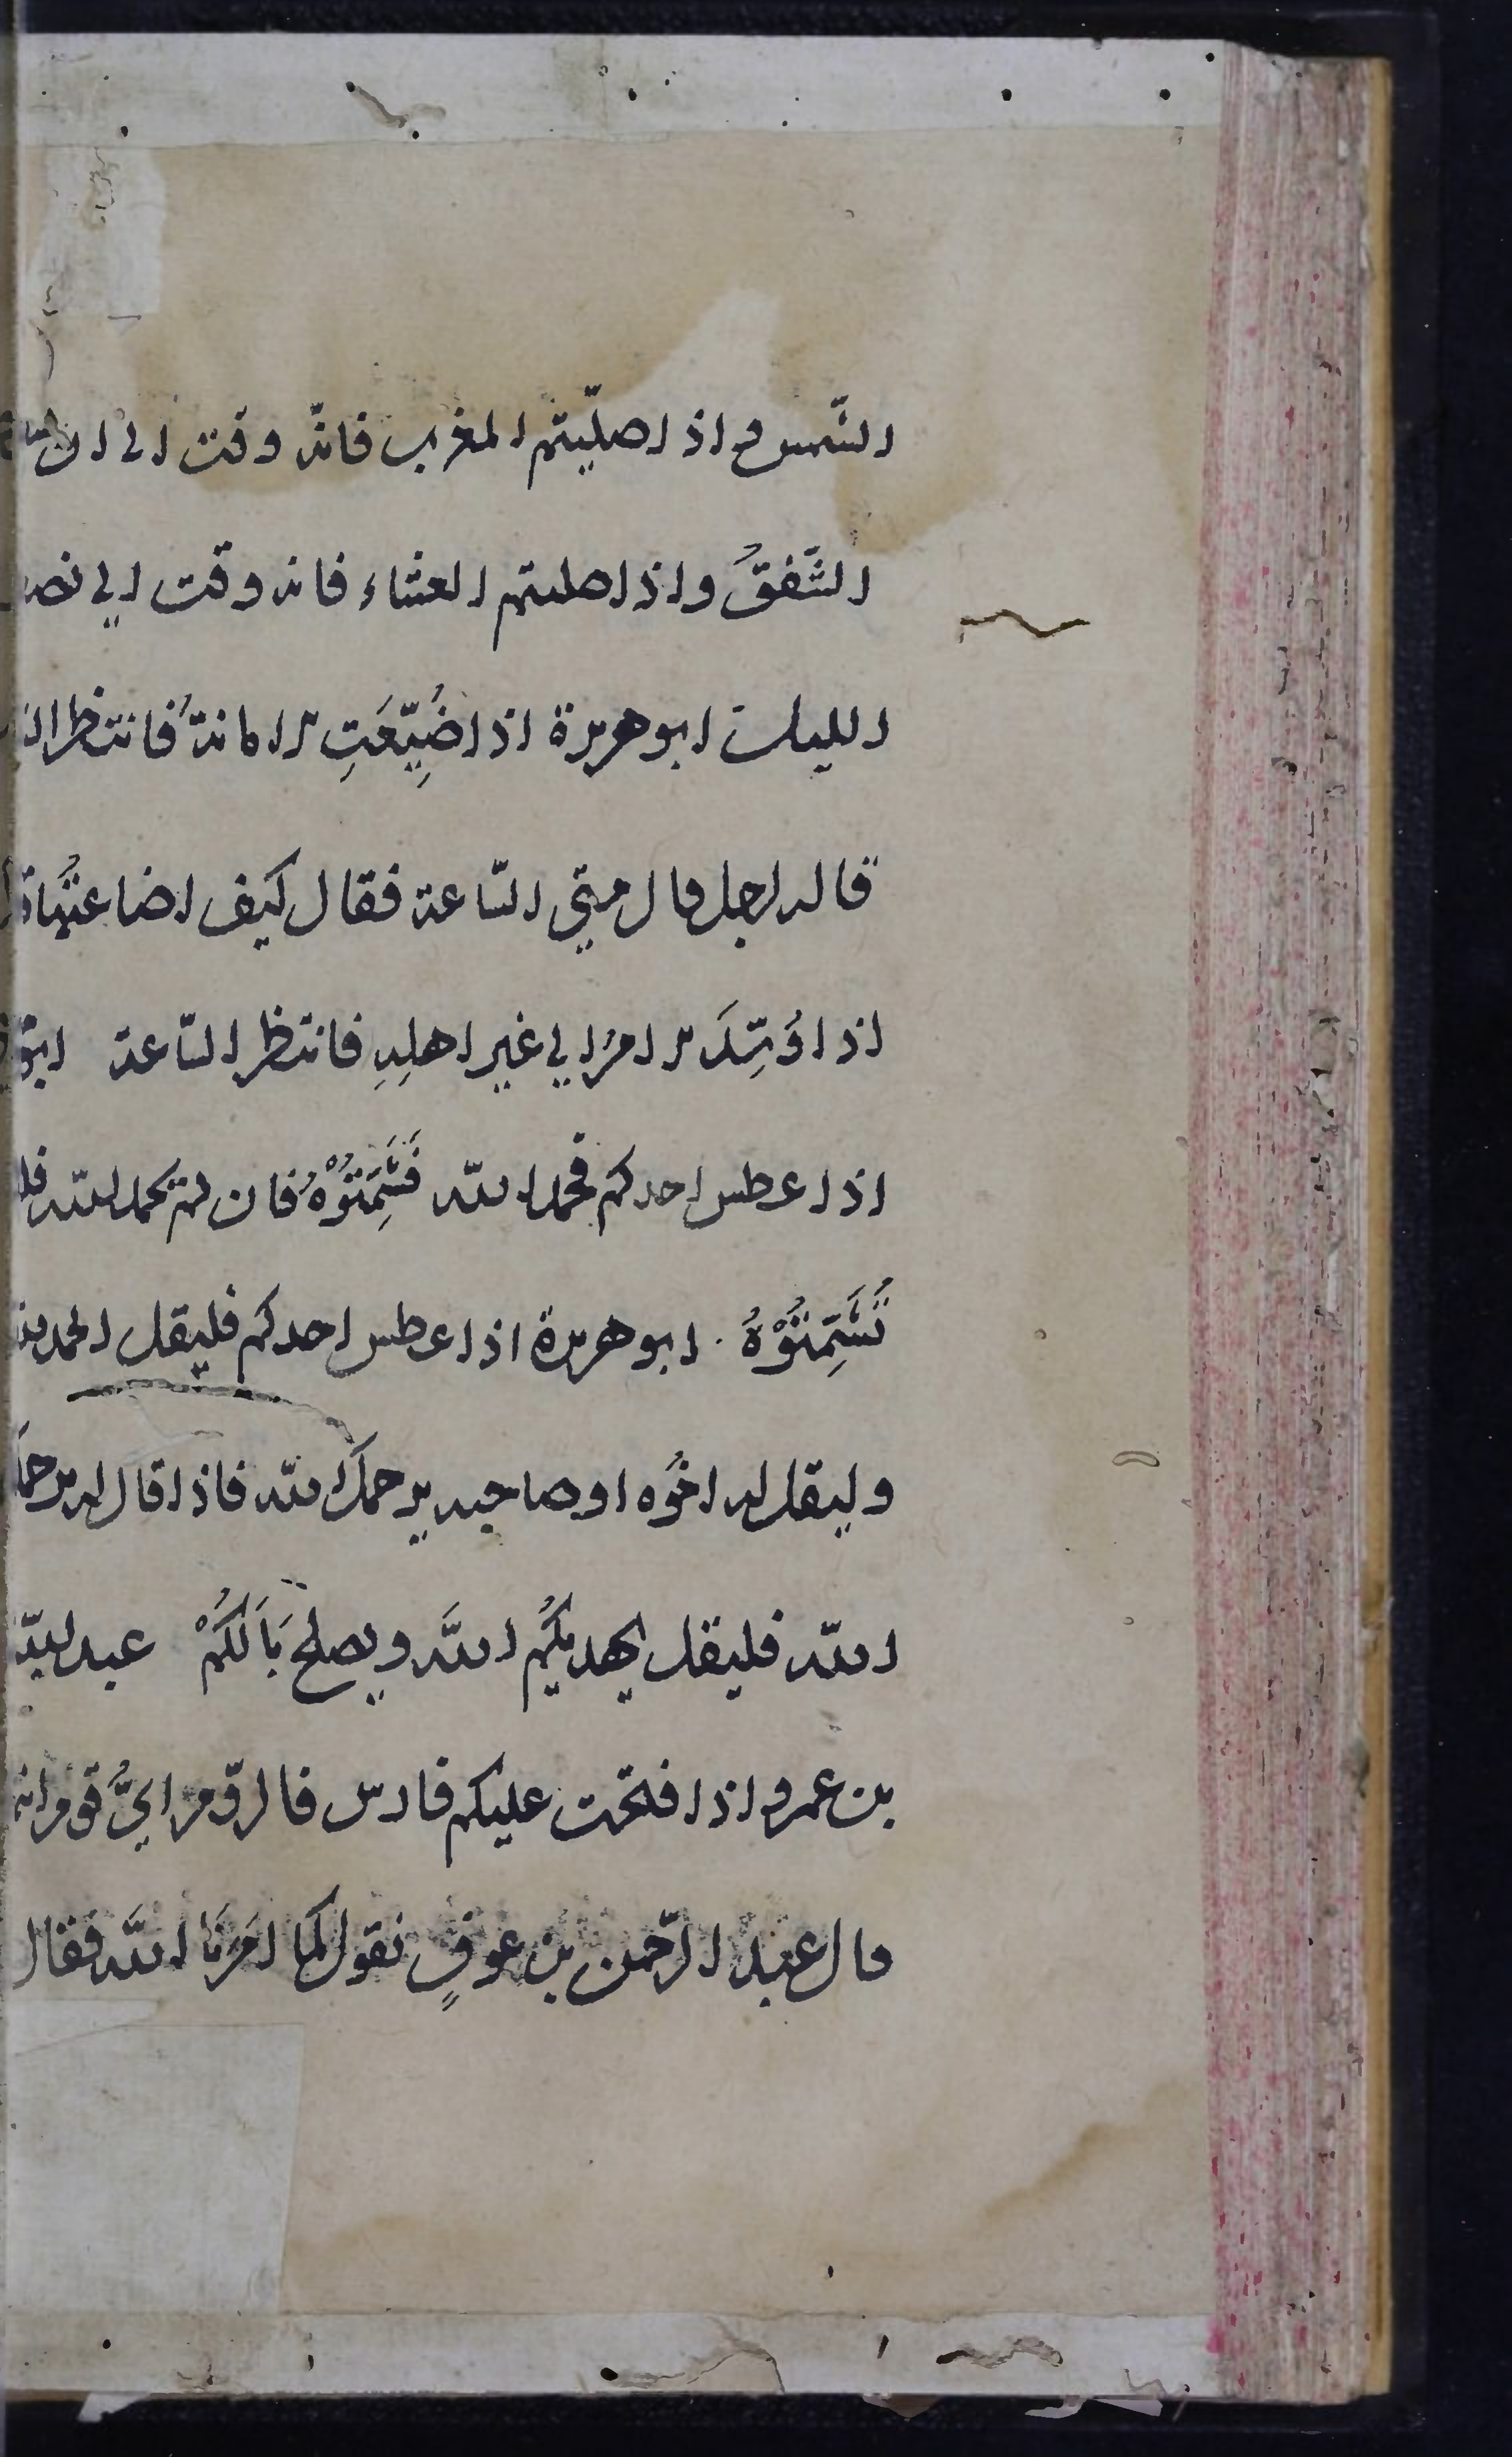 الشّمس واذا صلّيتم المغرب فانّه وقت الى ان
الشَّفقُ واذا صليتم العشاء فانه وقت الي نصف
الليل ابو هريرة اذا ضُيِّعَتِ الامانةُ فانتظر
قاله لرجل قال متي السّاعة فقال كيف اضاعتُها
اذا اوُسِّدَ الامرُ الي غير اهلِهِ فانتظر السّاعة ابو
اذا عطس احدكم فحمد اللّه فَشَمِّتُوْهُ فان لم يحمد اللّه فلا
تُشَمِّتُوْهُ ابو هريرة اذا عطس احدكم فليقل الحمد لله
وليقل له اخُوه او صاحبه يرحمكَ اللّه فاذا قال له يرحمك
اللّه فليقل يهديكُم اللَّه ويصلح بَالَكُمْ عبد اللّه
بن عمرو اذا فتحت عليكم فارس فالرّوم ايُّ قوم انتم
قال عبد الرّحمن بن عوفٍ نقول كما امَرنَا اللَّه فقال